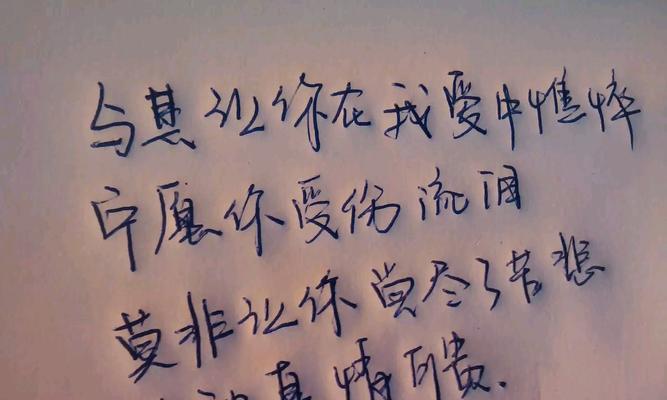 与其让你在我爱中憔悴
宁愿你受伤流泪
莫非让你尝尽了苦悲
真情可贵.